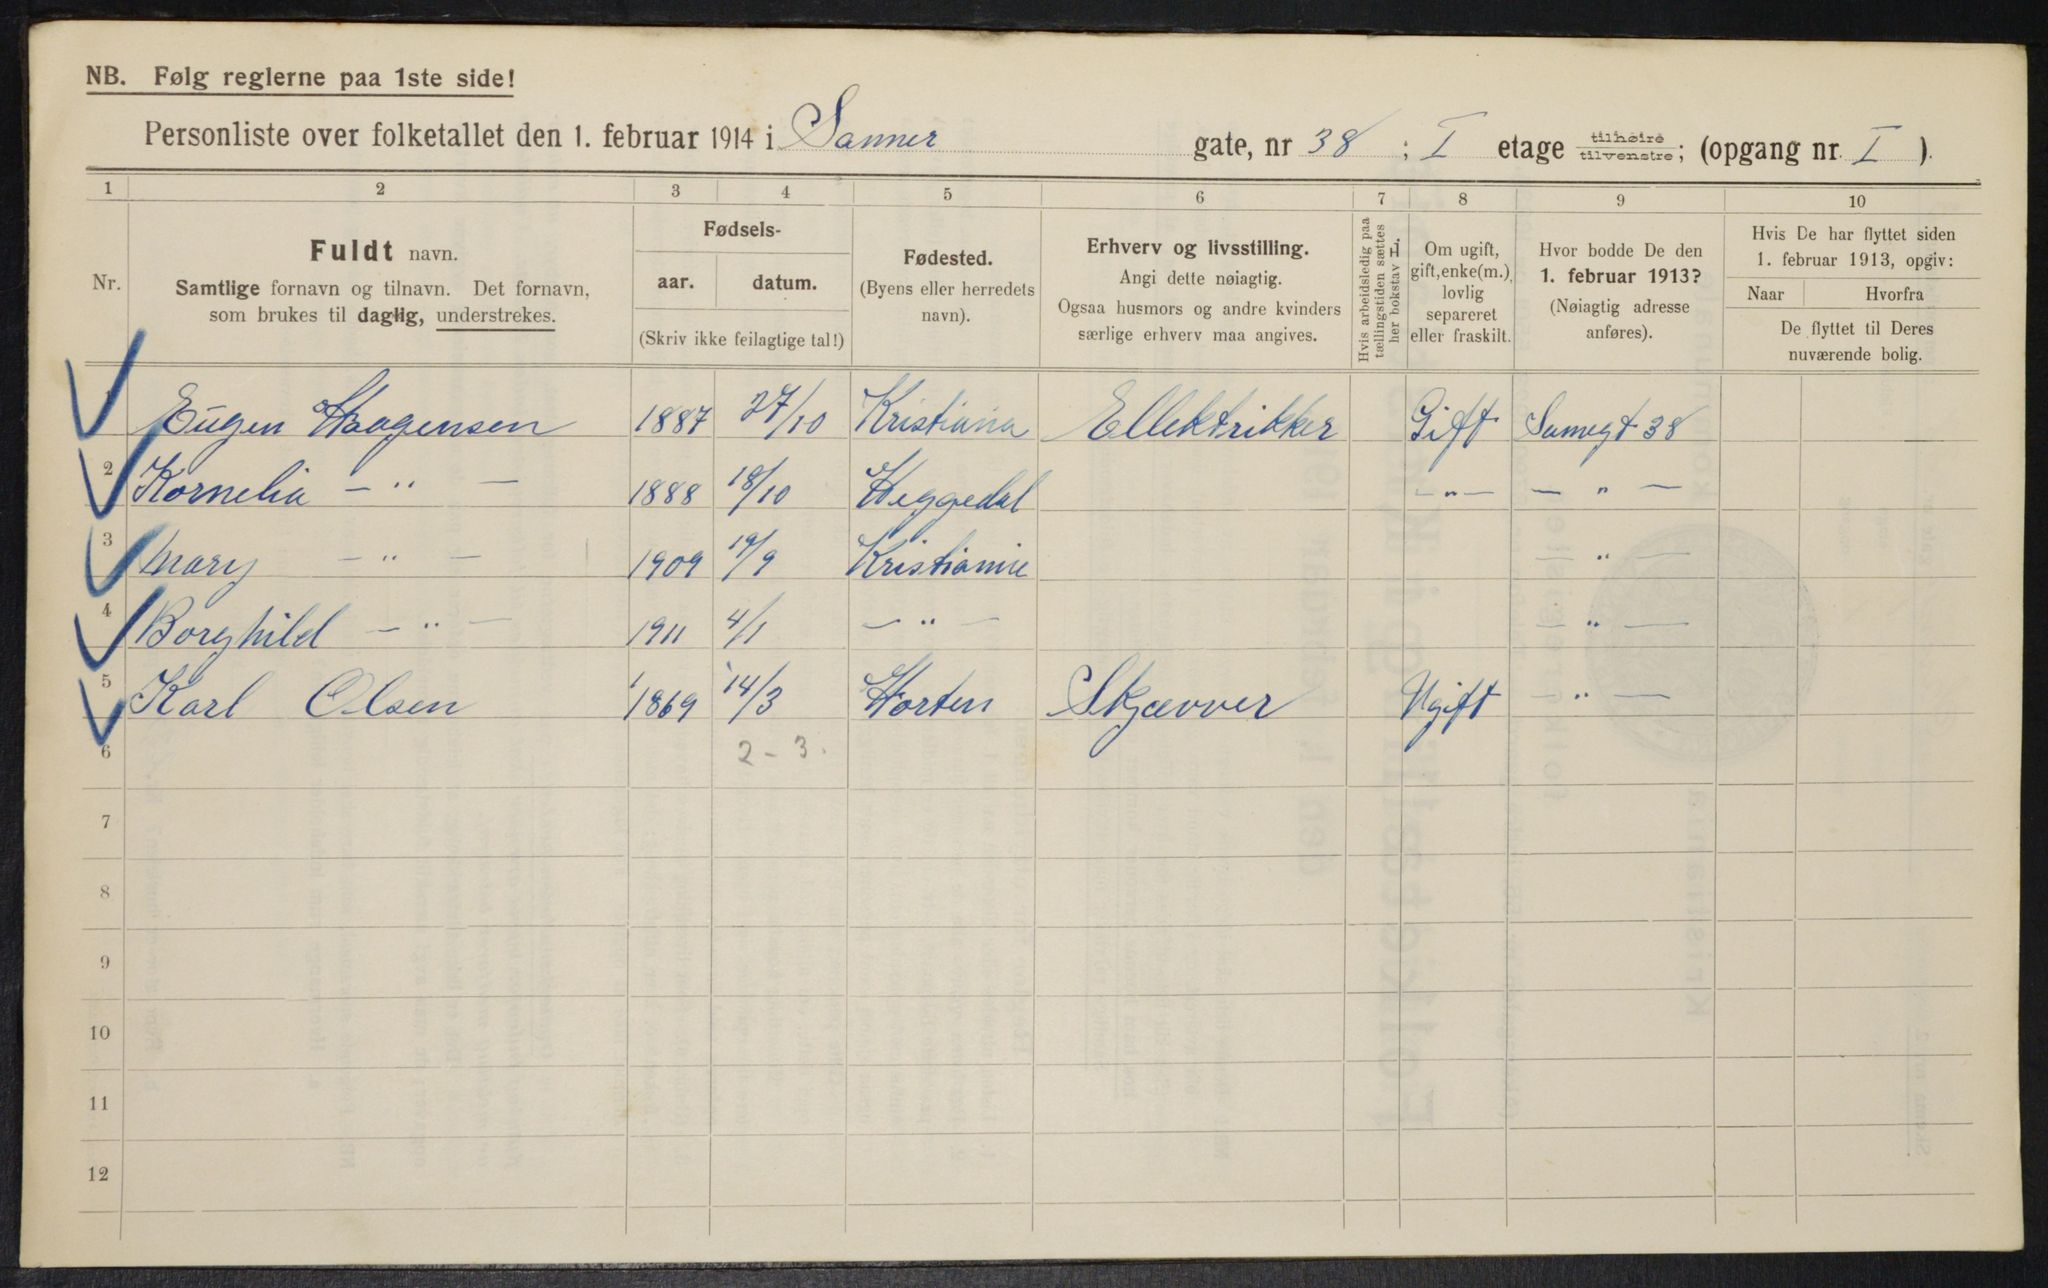 NB. Følg reglerne paa 1ste side!
Personliste over folketallet den 1. februar 1914 i Sanner gate, nr 38 ; I etage tilhøire tilvenstre; (opgang nr. I ).
1 2 3 4 5 6 7 8 9 10
Nr.
Fuldt navn.
Samtlige fornavn og tilnavn. Det fornavn,
som brukes til daglig, understrekes.
Fødsels-
aar. datum.
(Skriv ikke feilagtige tal!)
Fødested.
(Byens eller herredets
navn).
Erhverv og livsstilling.
Angi dette nøiagtig.
Ogsaa husmors og andre kvinders
særlige erhverv maa angives.
Hvis arbeidsledig paa
tællingstiden sættes
her bokstav L
Om ugift,
gift, enke(m.),
lovlig
separeret
eller fraskilt.
Hvor bodde De den
1. februar 1913?
(Nøiagtig adresse
anføres).
Hvis De har flyttet siden
1. februar 1913, opgiv:
Naar Hvorfra
De flyttet til Deres
nuværende bolig.
Eugen Haagensen 1887 27/10 Kristiania Ellektrikker Gift Samegt 38
2 Kornelia — " — 1888 18/10 Heggedal — " — — " —
3 Mary — " — 1909 19/9 Kristianie — " —
4 Borghild — " — 1911 4/1 — " — — " —
5 Karl Olsen 1869 14/3 Horten Skjævver Ugift — " —
6 2 - 3.
7
8
9
10
11
12